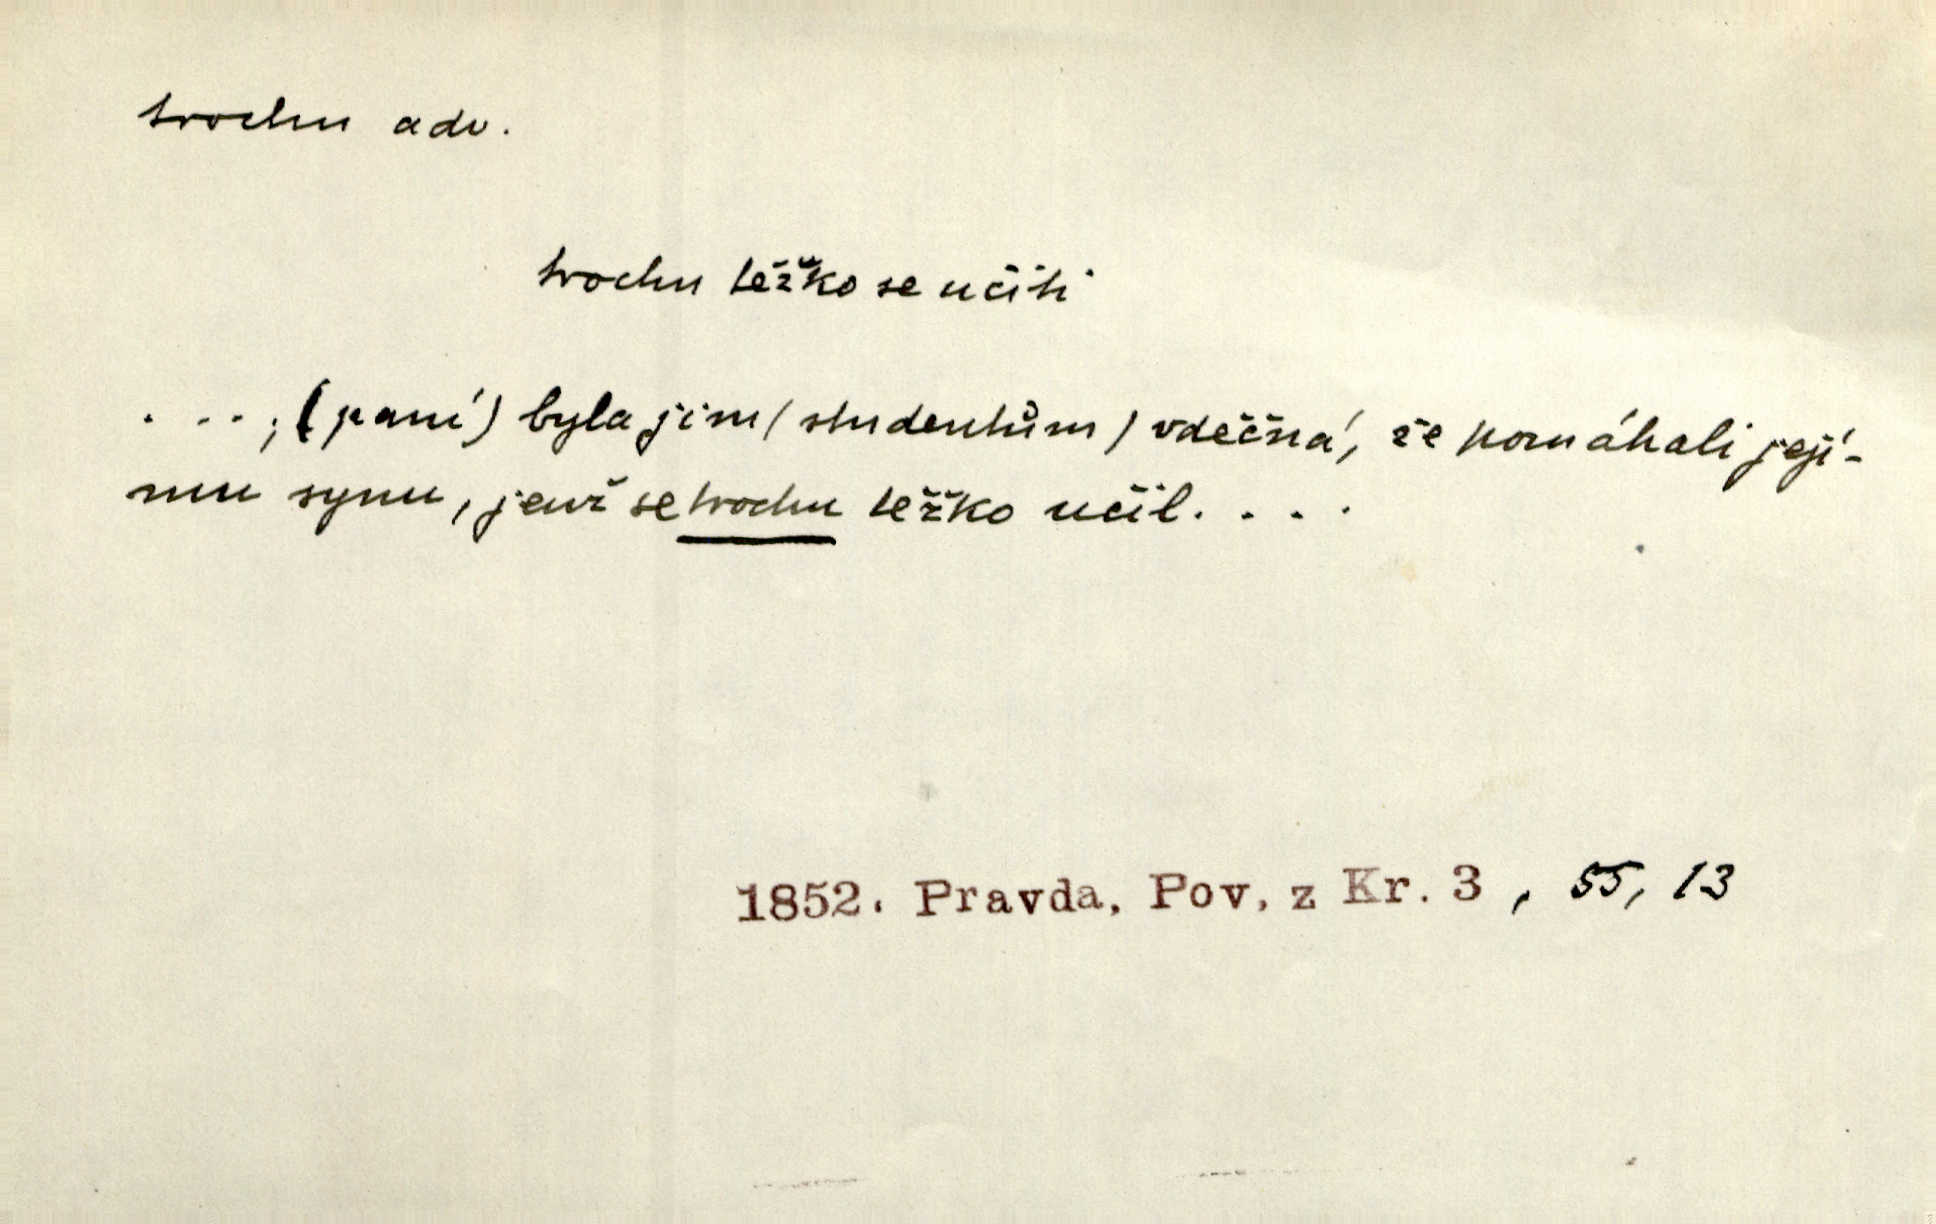 trochu adv.
trochu těžko se učiti
. ... ; (paní) byla jim (studentům) vděčná, že pomáhali její-
mu synu, jenž se trochu těžko učil. . . .
1852. Pravda, Pov. z Kr. 3, 55, 13